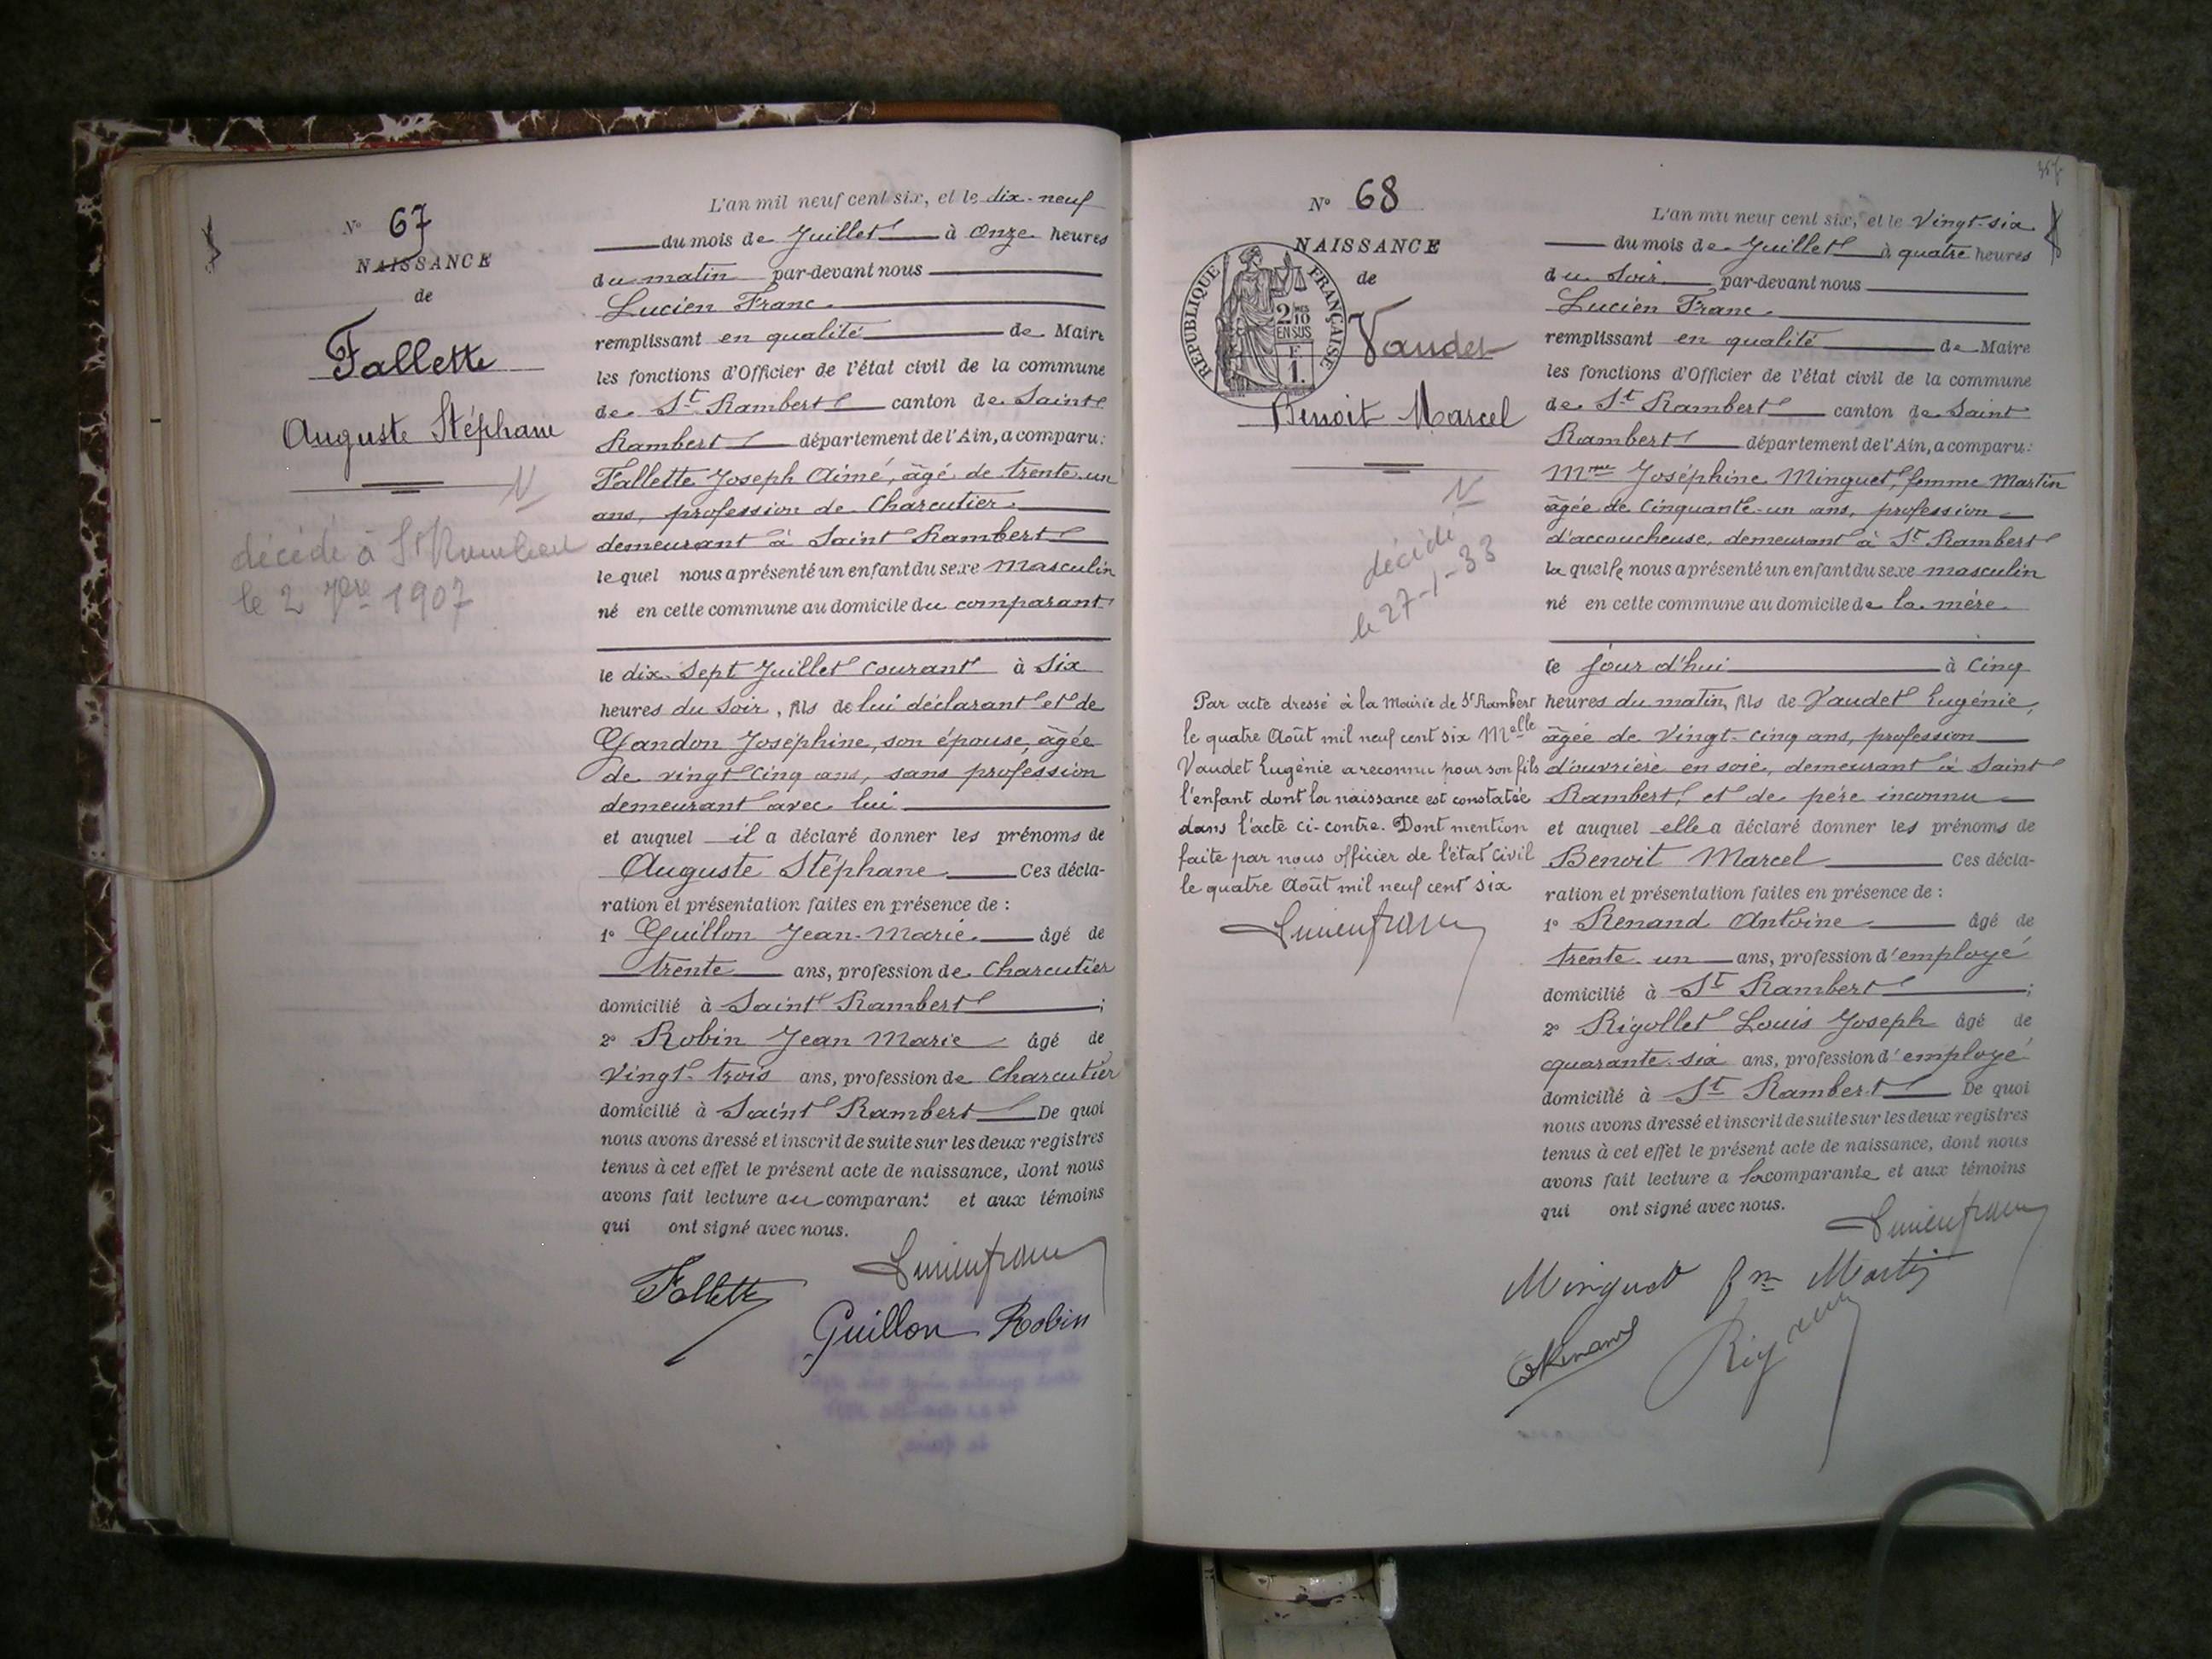 N° 67
NAISSANCE
de
Fallette
Auguste Stéphane
N
décédé à St Rambert
le 2 7bre 1907
L'an mil neuf cent six, et le dix-neuf
du mois de Juillet à onze heures
du matin par-devant nous
Lucien Franc
remplissant en qualité de Maire
les fonctions d'Officier de l'état civil de la commune
de St Rambert canton de Saint
Rambert département de l'Ain, a comparu:
Fallette Joseph Aimé, âgé de trente-un
ans, profession de Charcutier
demeurant à Saint Rambert
lequel nous a présenté un enfant du sexe masculin
né en cette commune au domicile du comparant
le dix-sept Juillet courant à six
heures du soir, fils de lui déclarant et de
Gandon Joséphine, son épouse, âgée
de vingt cinq ans, sans profession
demeurant avec lui
et auquel il a déclaré donner les prénoms de
Auguste Stéphane Ces décla-
ration et présentation faites en présence de :
1° Guillon Jean-Marie âgé de
trente ans, profession de Charcutier
domicilié à Saint Rambert ;
2° Robin Jean Marie âgé de
vingt-trois ans, profession de Charcutier
domicilié à Saint Rambert De quoi
nous avons dressé et inscrit de suite sur les deux registres
tenus à cet effet le présent acte de naissance, dont nous
avons fait lecture au comparant et aux témoins
qui ont signé avec nous.
Lucien Franc
Fallette
Guillon Robin
357
N° 68
NAISSANCE
de
RÉPUBLIQUE FRANÇAISE
2 mes
10
EN SUS
F
1.
Vaudet
Benoit Marcel
N
décédé
le 27-1-33
Par acte dressé à la Mairie de St Rambert
le quatre Août mil neuf cent six Melle
Vaudet Eugénie a reconnu pour son fils
l'enfant dont la naissance est constatée
dans l'acte ci-contre. Dont mention
faite par nous officier de l'état civil
le quatre Août mil neuf cent six
Lucien Franc
L'an mil neuf cent six, et le vingt-six
du mois de Juillet à quatre heures
du soir par-devant nous
Lucien Franc
remplissant en qualité de Maire
les fonctions d'Officier de l'état civil de la commune
de St Rambert canton de Saint
Rambert département de l'Ain, a comparu:
Mme Joséphine Minguet, femme Martin
âgée de cinquante-un ans, profession
d'accoucheuse, demeurant à St Rambert
laquelle nous a présenté un enfant du sexe masculin
né en cette commune au domicile de la mère
ce jour d'hui à cinq
heures du matin, fils de Vaudet Eugénie,
âgée de vingt-cinq ans, profession
d'ouvrière en soie, demeurant à Saint
Rambert, et de père inconnu
et auquel elle a déclaré donner les prénoms de
Benoit Marcel Ces décla-
ration et présentation faites en présence de :
1° Renand Antoine âgé de
trente-un ans, profession d'employé
domicilié à St Rambert ;
2° Rigollet Louis Joseph âgé de
quarante-six ans, profession d'employé
domicilié à St Rambert De quoi
nous avons dressé et inscrit de suite sur les deux registres
tenus à cet effet le présent acte de naissance, dont nous
avons fait lecture a la comparante et aux témoins
qui ont signé avec nous.
Lucien Franc
Minguet fme Martin